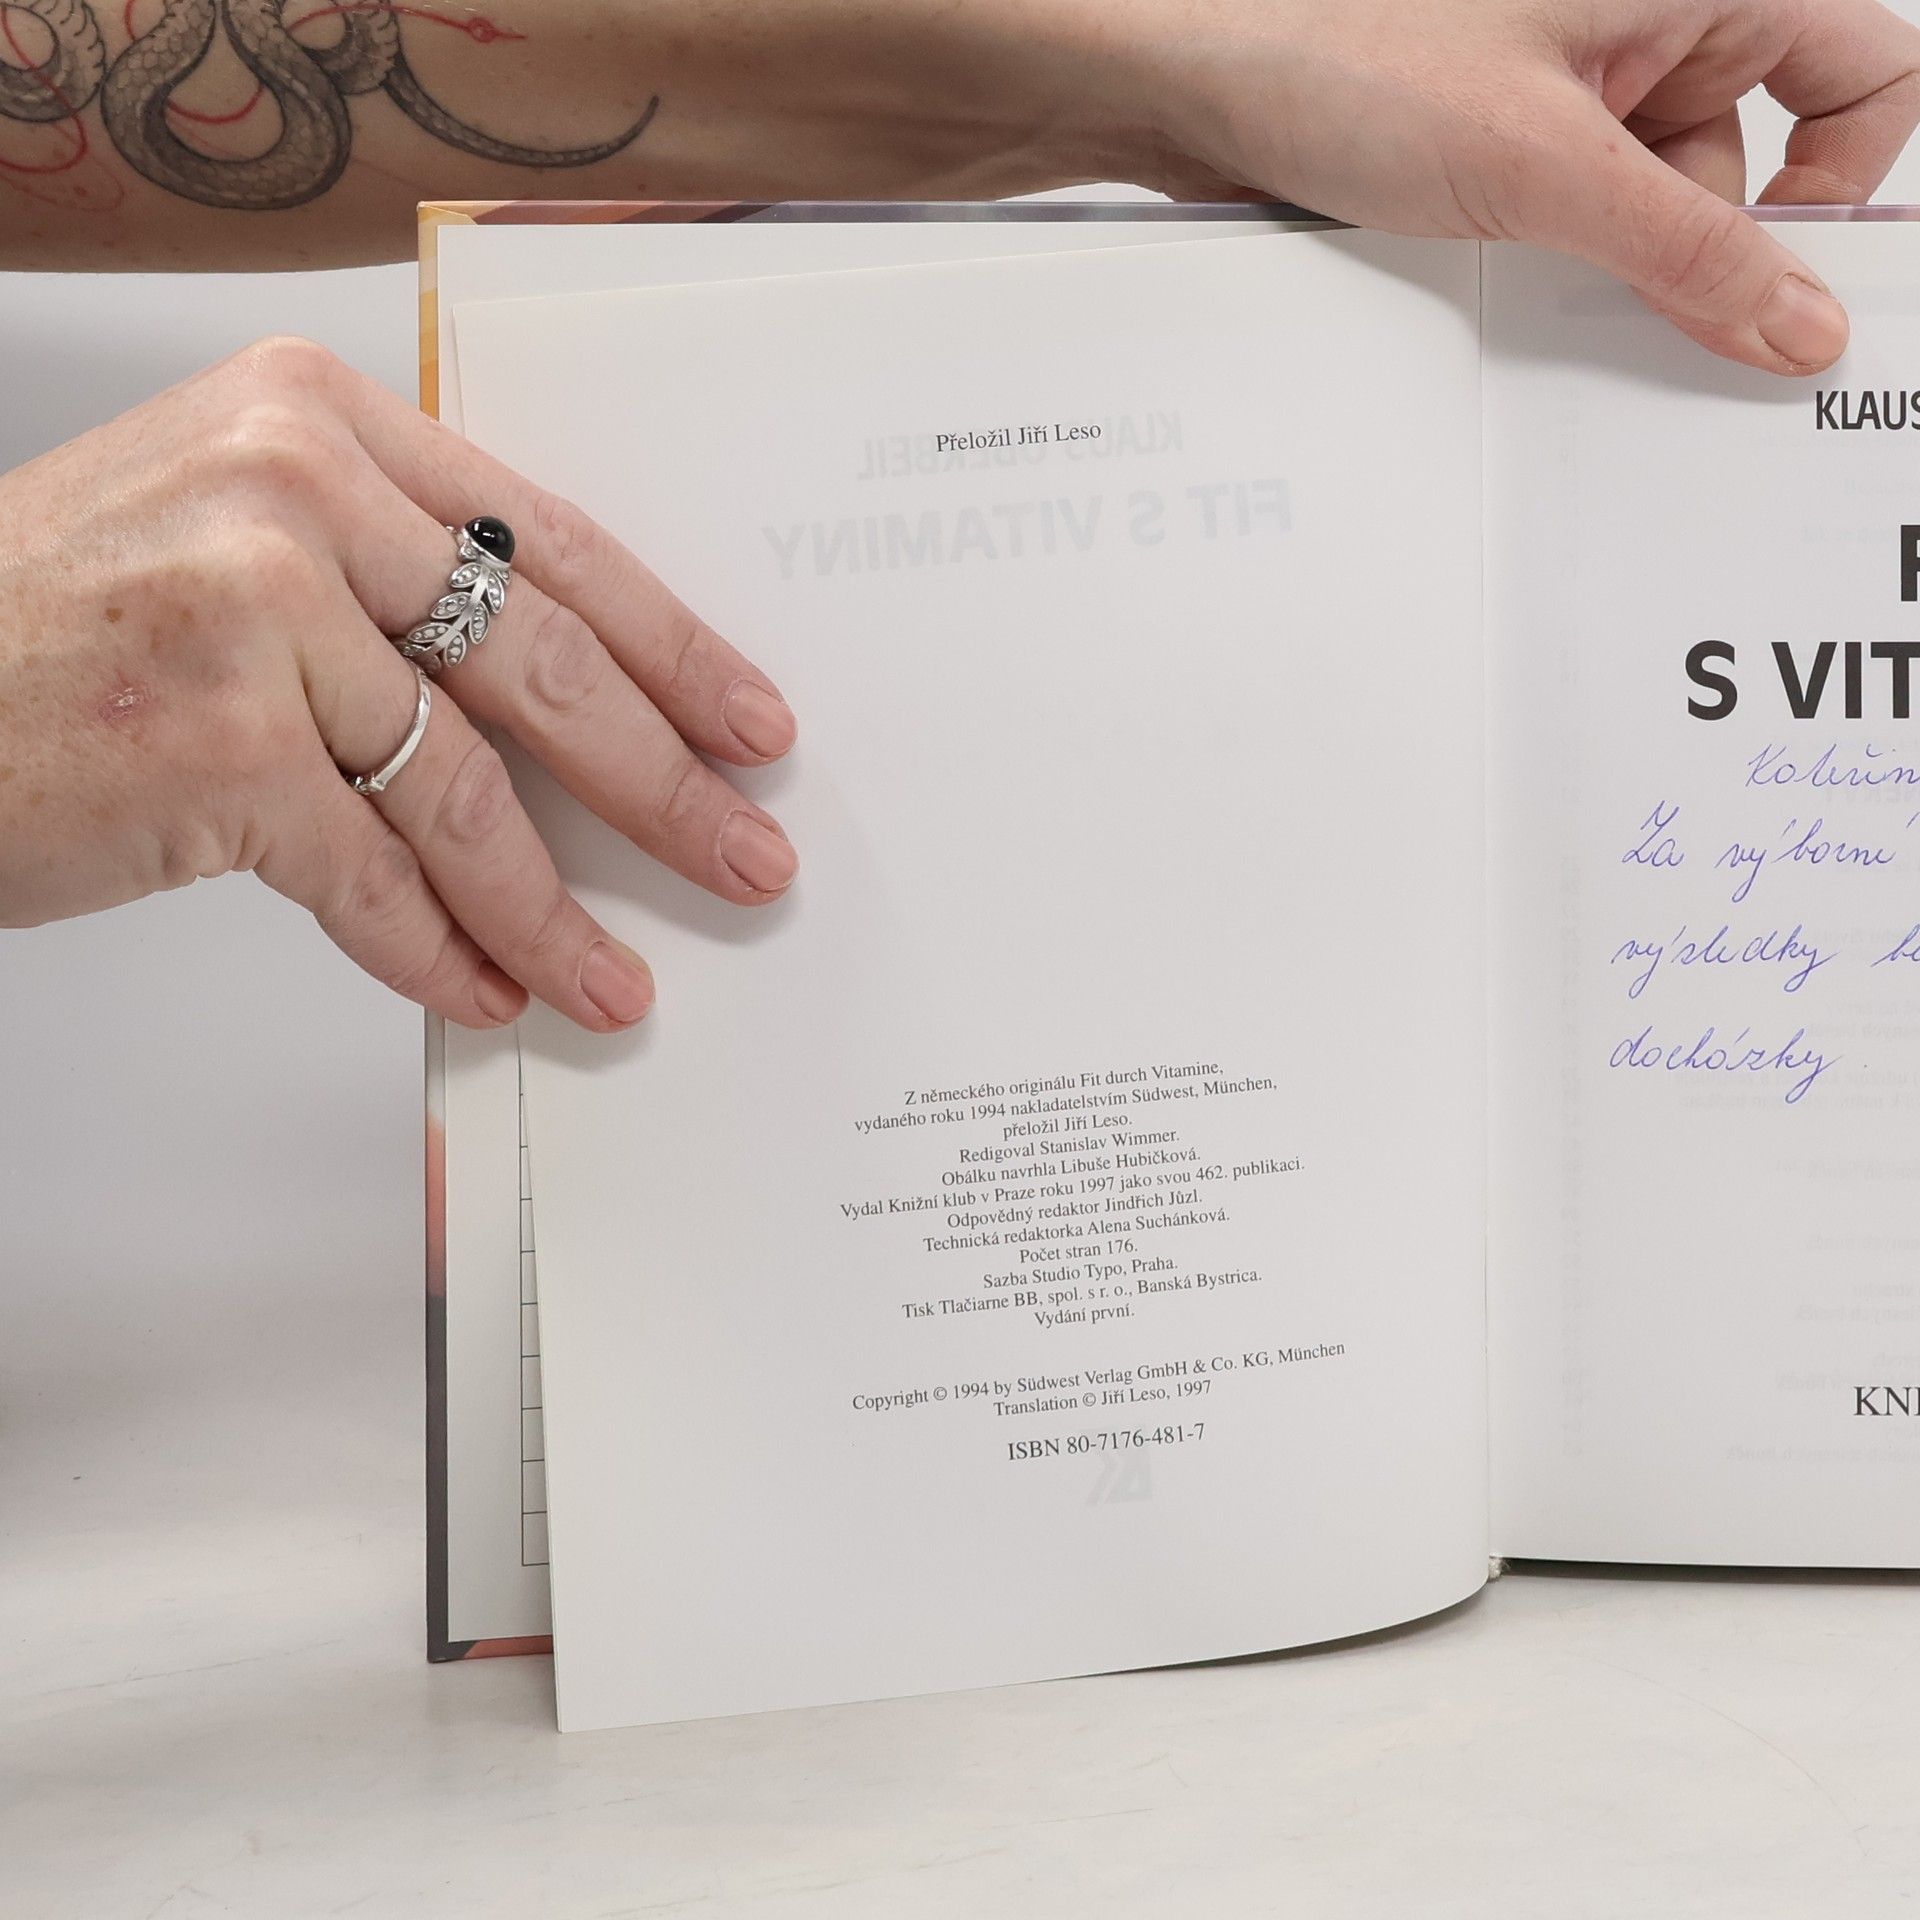 Přeložil Jiří Leso
Z německého originálu Fit durch Vitamine,
vydaného roku 1994 nakladatelstvím Südwest, München,
přeložil Jiří Leso.
Redigoval Stanislav Wimmer.
Obálku navrhla Libuše Hubičková.
Vydal Knižní klub v Praze roku 1997 jako svou 462. publikaci.
Odpovědný redaktor Jindřich Jůzl.
Technická redaktorka Alena Suchánková.
Počet stran 176.
Sazba Studio Typo, Praha.
Tisk Tlačiarne BB, spol. s r. o., Banská Bystrica.
Vydání první.
Copyright © 1994 by Südwest Verlag GmbH & Co. KG, München
Translation © Jiří Leso, 1997
ISBN 80-7176-481-7
KLAUS
F
S VIT
Kateřin
Za výborné
výsledky
docházky.
KNI